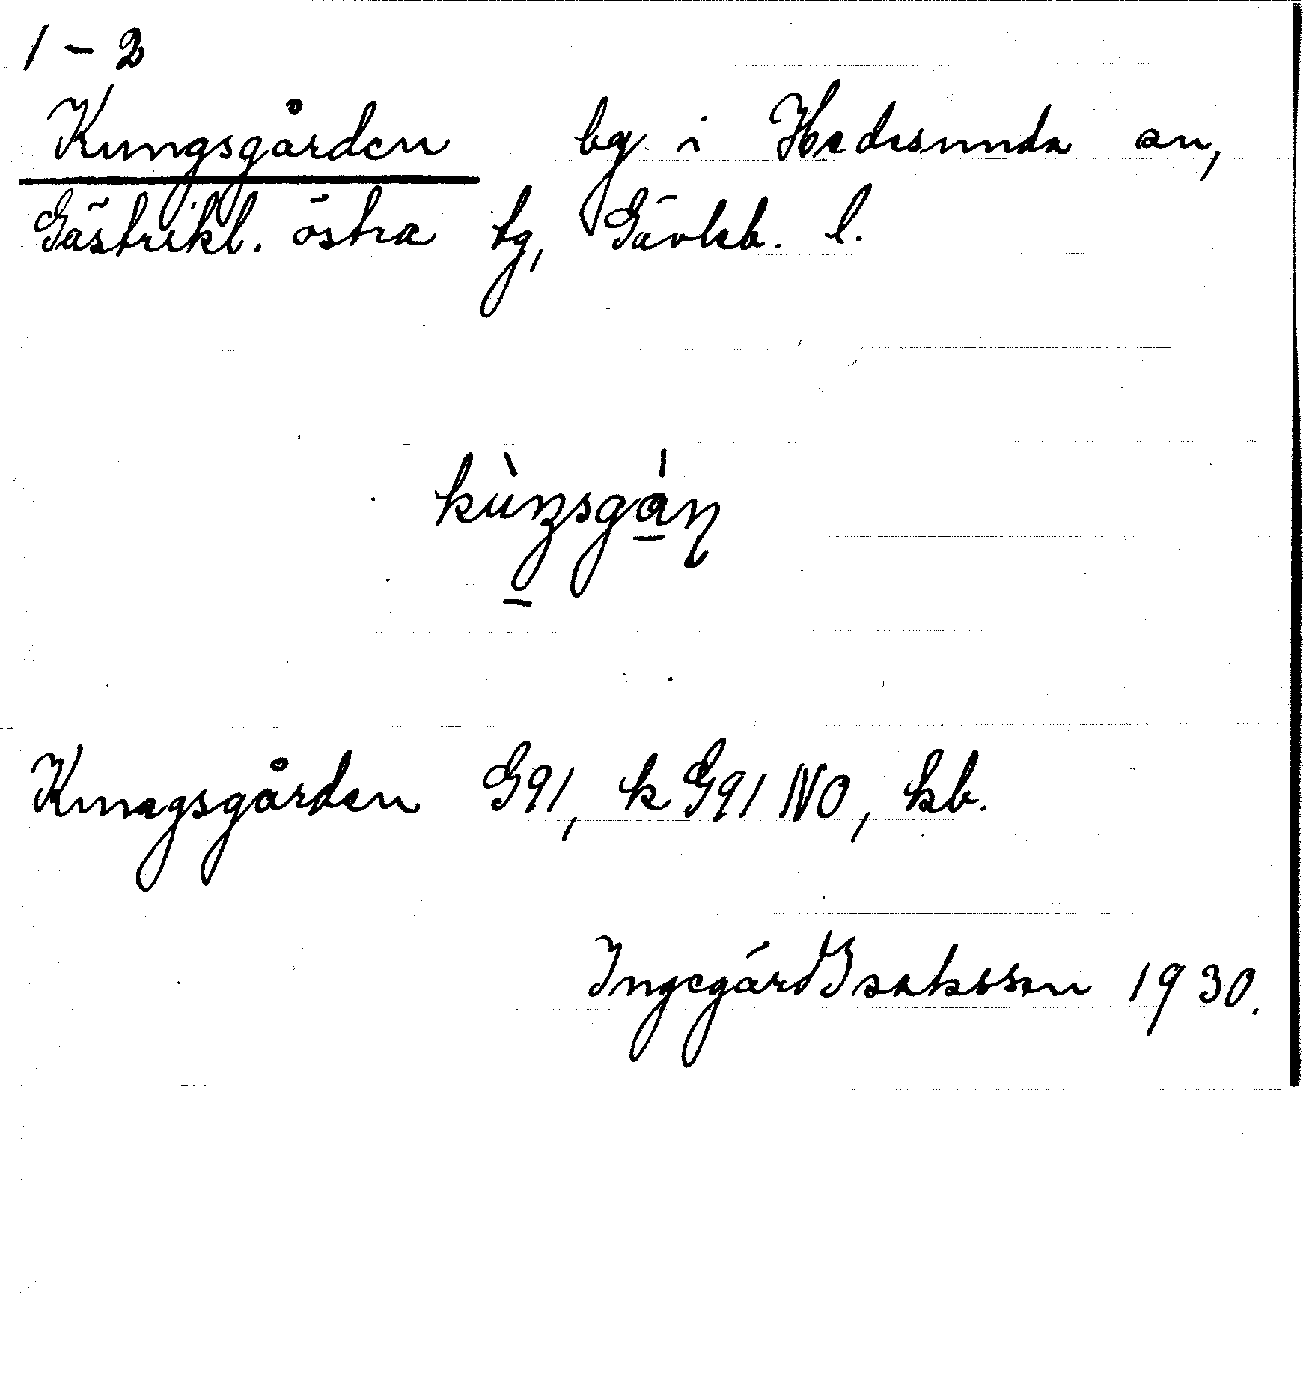 1-2
Kungsgården by i Hedesunda sn,
Gästrikl. östra tg, Gävleb. l.
kùŋsgáṇ
Kungsgården G91, k G91 NO, kb.
Ingegärd Isaksson 1930.